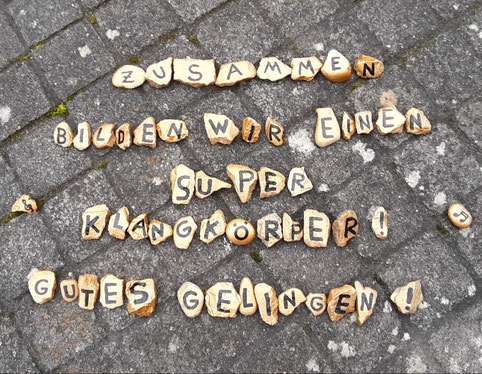 ZUSAMMEN
BILDEN WIR EINEN
SUPER
KLANGKÖRPER!
GUTES GELINGEN!